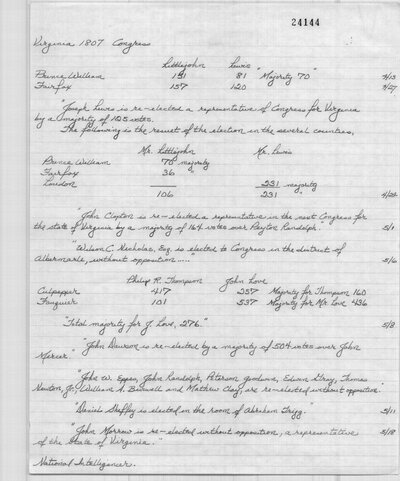 24144
Virginia 1807 Congress
Littlejohn Lewis
Prince William 151 81 "Majority 70" 4/13
Fairfax 157 120 4/27
"Joseph Lewis is re-elected a representative of Congress for Virginia
by a majority of 125 votes.
The following is the result of the election in the several counties.
Mr. Littlejohn Mr. Lewis
Prince William 70 majority
Fairfax 36 "
Loudon 231 majority
106 231 "
"John Clopton is re-elected a representative in the next Congress for
the state of Virginia by a majority of 164 votes over Peyton Randolph." 5/1
"Wilson C. Nicholas, Esq. is elected to Congress in the district of
Albermarle, without opposition....." 5/6
Philip R. Thompson John Love
Culpepper 417 257 Majority for Thompson 160
Fauquier 101 537 Majority for Mr Love 436
"Total majority for J. Love, 276." 5/8
"John Dawson is re-elected by a majority of 504 votes over John
Mercer."
"John W. Eppes, John Randolph, Peterson Goodwin, Edwin Gray, Thomas
Newton, Jr., William A. Burwell and Mathew Clay, are re-elected without opposition.
"Daniel Sheffey is elected in the room of Abraham Trigg." 5/11
"John Morrow is re-elected without opposition, a representative 5/18
of the State of Virginia."
National Intelligencer.